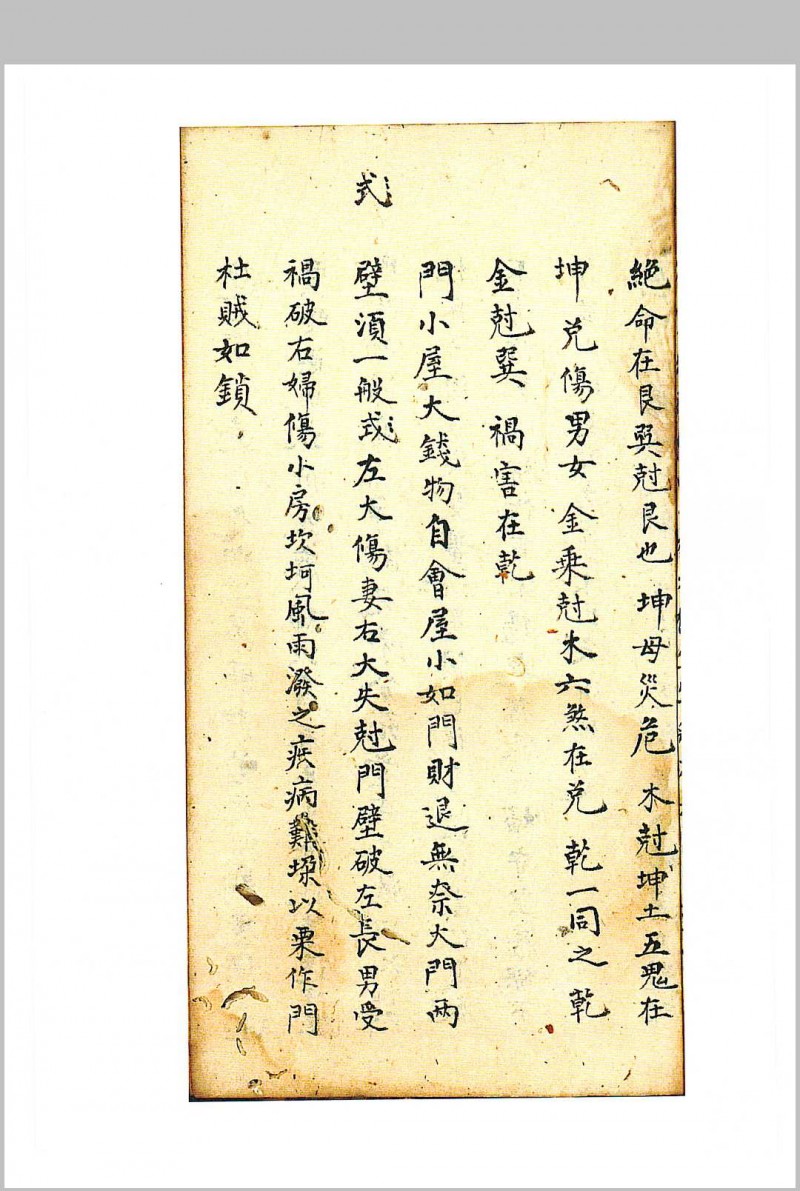 絶命在艮巽尅艮也 坤母災危 木尅坤土五鬼在
坤 兑傷男女 金乘尅木六煞在兑 乾一同之乾
金尅巽 禍害在乾
門小屋大錢物自會屋小如門財退無奈大門兩
式
壁湏一般或左大傷妻右大失尅門壁破左長男受
禍破右婦傷小房坎坷風雨潑之疾病難垛以栗作門
杜賊如鎖